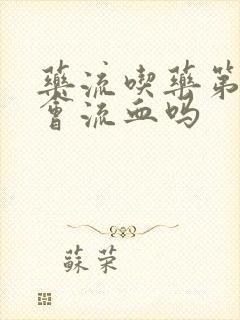 藥流喫藥第
會流血嗎
蘇荣